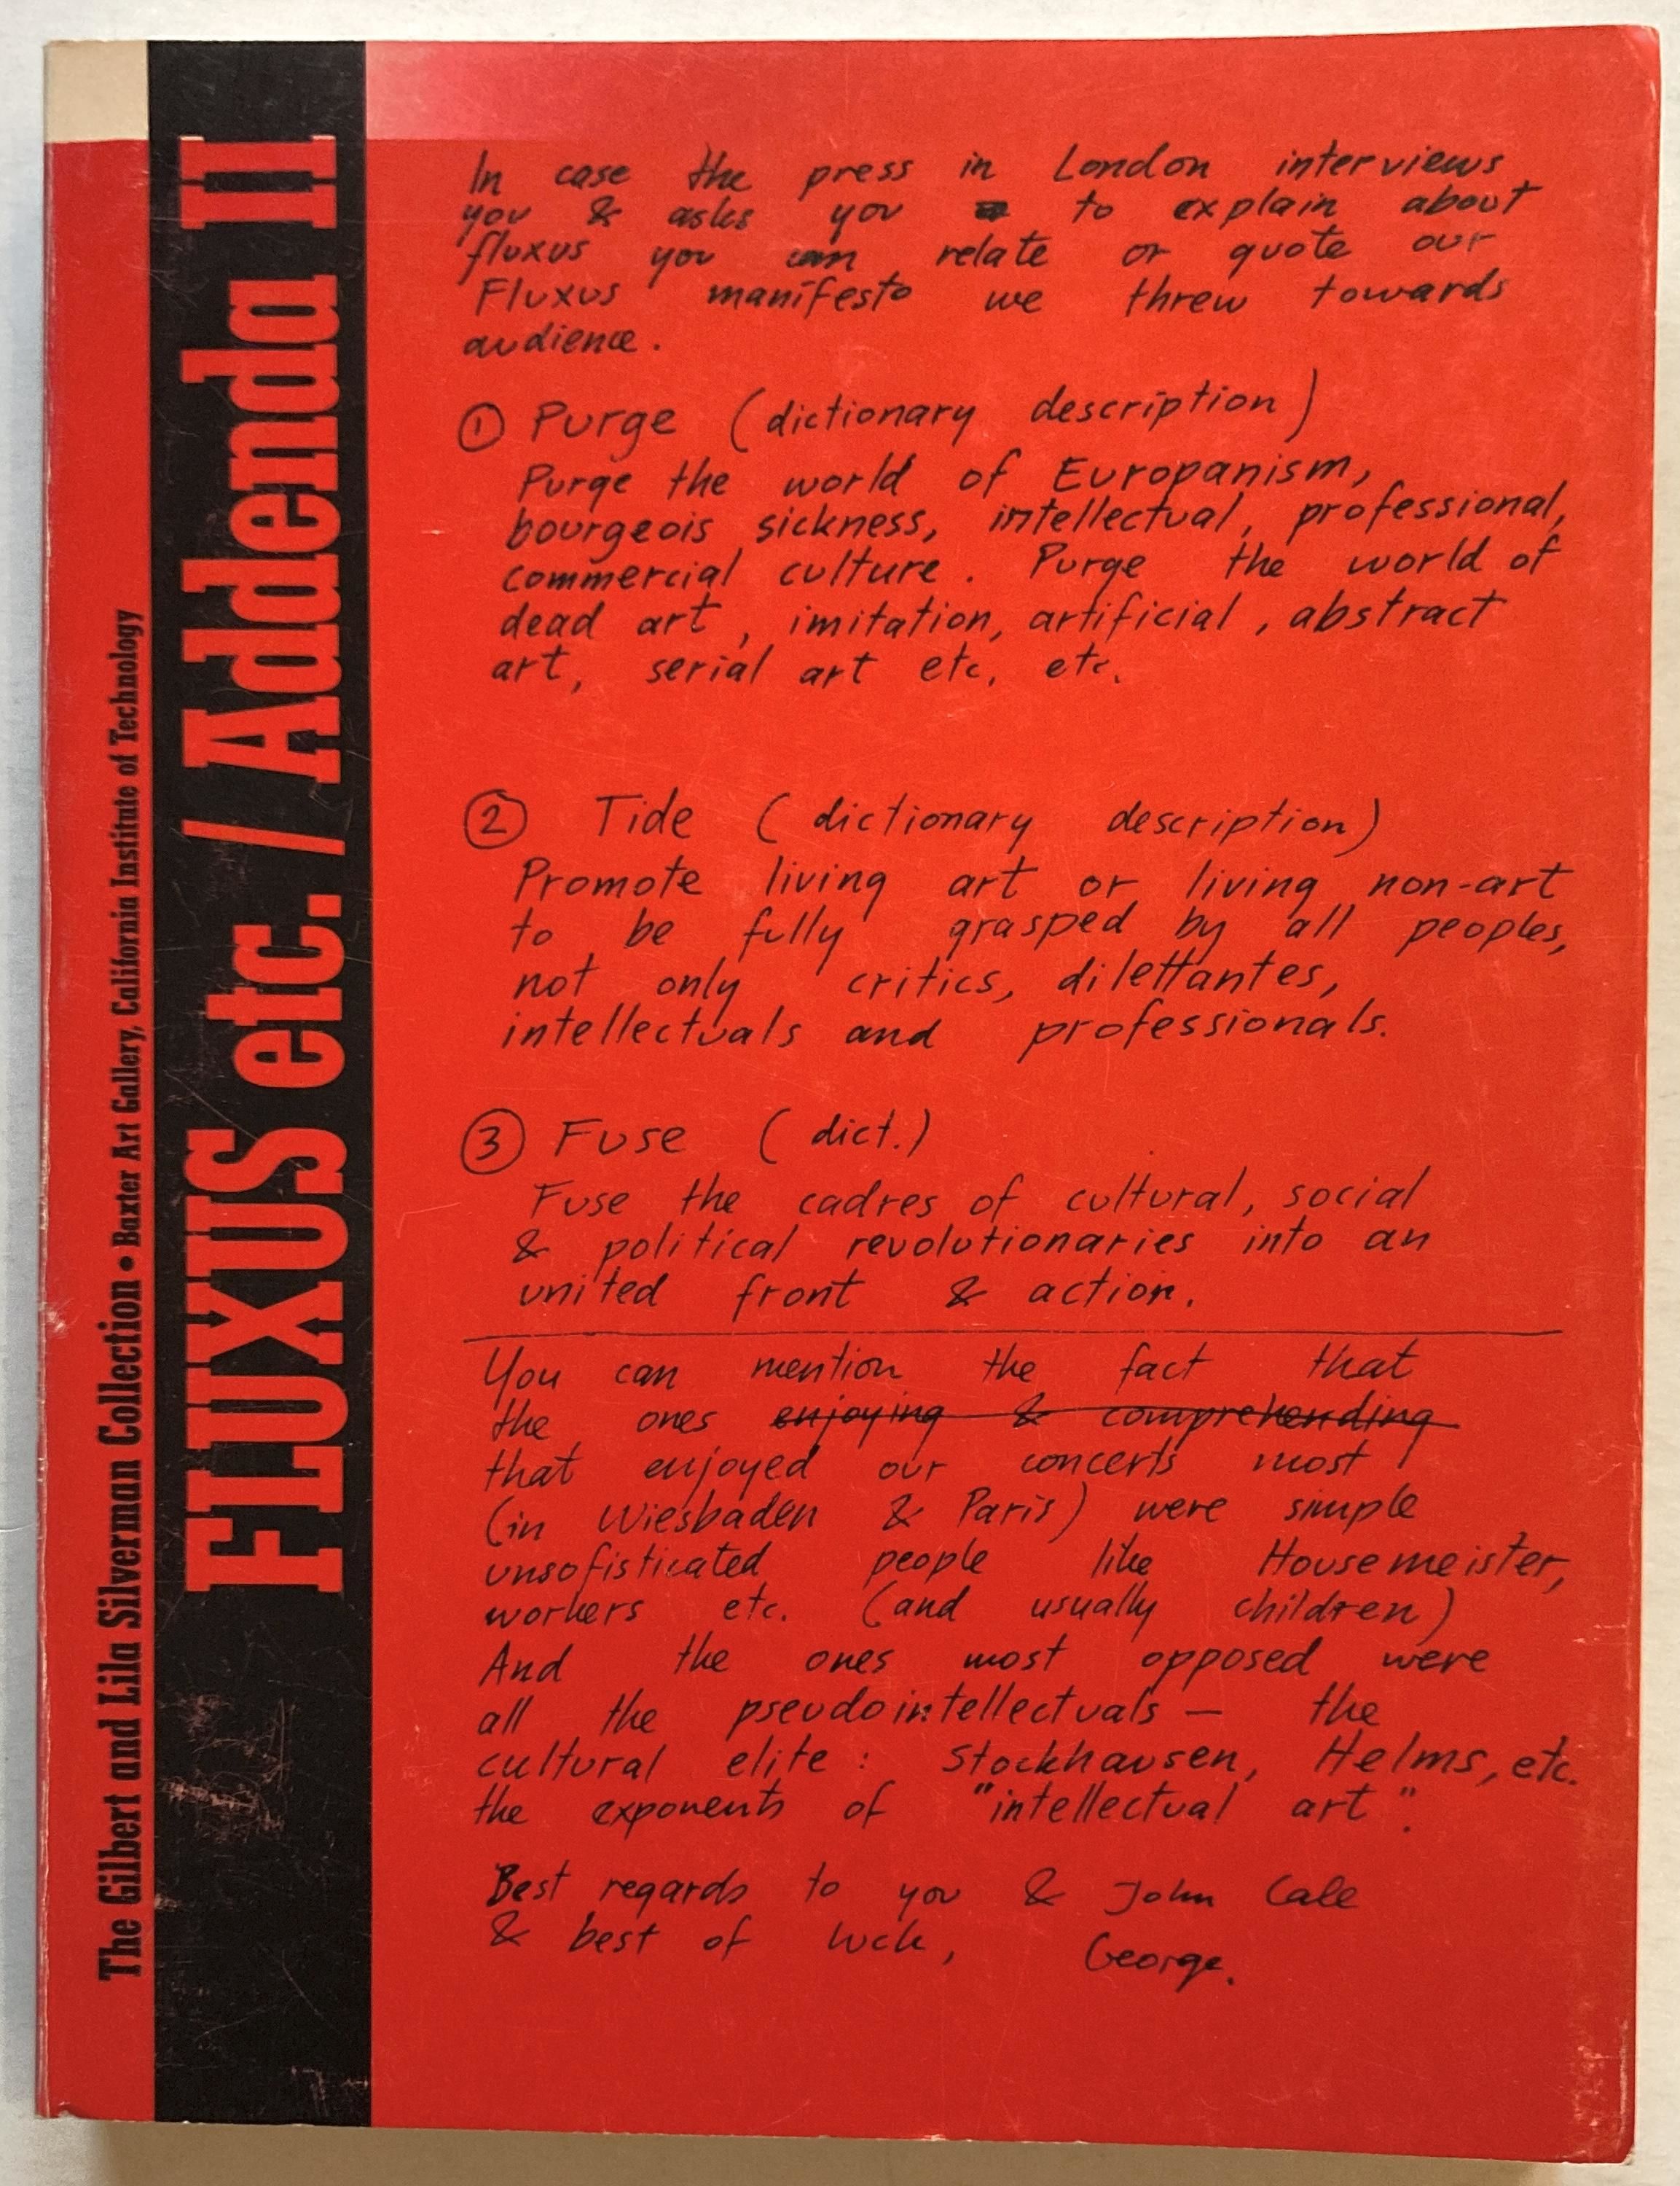 The Gilbert and Lila Silverman Collection • Baxter Art Gallery, California Institute of Technology
FLUXUS etc. / Addenda II
In case the press in London interviews
you & asks you to explain about
fluxus you can relate or quote our
Fluxus manifesto we threw towards
audience.
① Purge (dictionary description)
Purge the world of Europanism,
bourgeois sickness, intellectual, professional,
commercial culture. Purge the world of
dead art, imitation, artificial, abstract
art, serial art etc, etc.
② Tide (dictionary description)
Promote living art or living non-art
to be fully grasped by all peoples,
not only critics, dilettantes,
intellectuals and professionals.
③ Fuse (dict.)
Fuse the cadres of cultural, social
& political revolutionaries into an
united front & action.
You can mention the fact that
the ones enjoying & comprehending
that enjoyed our concerts most
(in Wiesbaden & Paris) were simple
unsofisticated people like Housemeister,
workers etc. (and usually children)
And the ones most opposed were
all the pseudointellectuals — the
cultural elite: Stockhausen, Helms, etc.
the exponents of "intellectual art".
Best regards to you & John Cale
& best of luck, George.